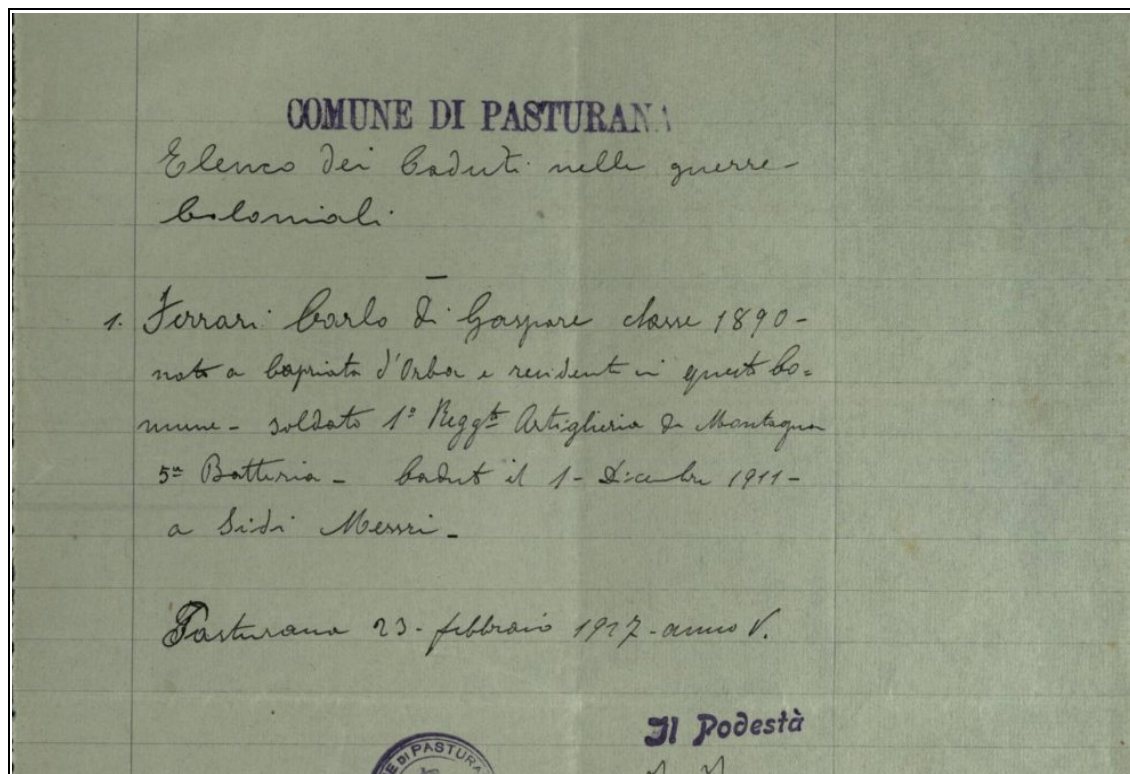 COMUNE DI PASTURANA
Elenco dei Caduti nelle guerre
Coloniali
1. Ferrari Carlo di Gaspare classe 1890-
nato a Capriata d'Orba e residente in questo Co=
mune - soldato 1º Reggto Artiglieria da Montagna
5ª Batteria - Caduto il 1- Dicembre 1911-
a Sidi Messri -
Pasturana 23- febbraio 1927- anno V.
Il Podestà
E DI PASTURA